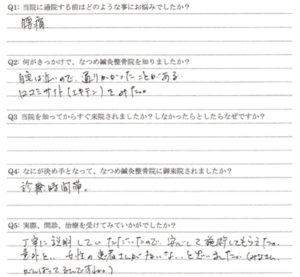 Q1: 当院に通院する前はどのような事にお悩みでしたか?
腰痛
Q2: 何がきっかけで、なつめ鍼灸整骨院を知りましたか?
自宅は近いので、通りかかったことがある。
口コミサイト(エキテン)をみた。
Q3 当院を知ってからすぐ来院されましたか?しなかったらとしたらなぜですか?
Q4: なにが決め手となって、なつめ鍼灸整骨院に御来院されましたか?
診療時間帯。
Q5: 実際、問診、治療を受けてみていかがでしたか?
丁寧に説明していただいたので、安心して施術してもらえた。
意外と、女性の患者さんが多いな、と思いました。(みなさん
がんばってるんですね。)